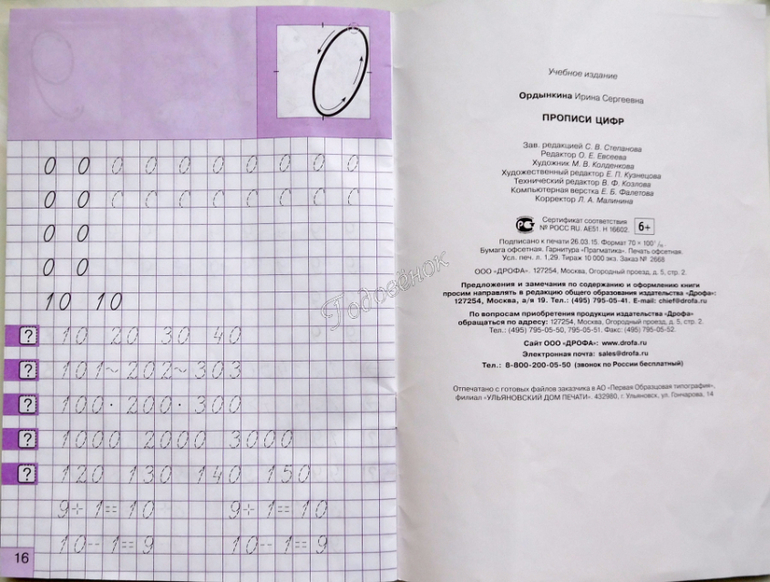 0
0 0 0 0 0 0 0 0 0 0
0 0
0 0
0 0
10 10
? 10 20 30 40
? 101~202~303
? 100·200·300
? 1000 2000 3000
? 120 130 140 150
9+1=10 9+1=10
10-1=9 10-1=9
16
Годовёнок
Учебное издание
Ордынкина Ирина Сергеевна
ПРОПИСИ ЦИФР
Зав. редакцией С. В. Степанова
Редактор О. Е. Евсеева
Художник М. В. Колденкова
Художественный редактор Е. П. Кузнецова
Технический редактор В. Ф. Козлова
Компьютерная верстка Е. Б. Фалетова
Корректор Л. А. Малинина
РС Сертификат соответствия 6+
№ РОСС RU. АЕ51. Н 16602.
Подписано к печати 26.03.15. Формат 70 × 100 1/8.
Бумага офсетная. Гарнитура «Прагматика». Печать офсетная.
Усл. печ. л. 1,29. Тираж 10 000 экз. Заказ № 2668
ООО «ДРОФА». 127254, Москва, Огородный проезд, д. 5, стр. 2.
Предложения и замечания по содержанию и оформлению книги
просим направлять в редакцию общего образования издательства «Дрофа»:
127254, Москва, а/я 19. Тел.: (495) 795-05-41. E-mail: chief@drofa.ru
По вопросам приобретения продукции издательства «Дрофа»
обращаться по адресу: 127254, Москва, Огородный проезд, д. 5, стр. 2.
Тел.: (495) 795-05-50, 795-05-51. Факс: (495) 795-05-52.
Сайт ООО «ДРОФА»: www.drofa.ru
Электронная почта: sales@drofa.ru
Тел.: 8-800-200-05-50 (звонок по России бесплатный)
Отпечатано с готовых файлов заказчика в АО «Первая Образцовая типография»,
филиал «УЛЬЯНОВСКИЙ ДОМ ПЕЧАТИ». 432980, г. Ульяновск, ул. Гончарова, 14